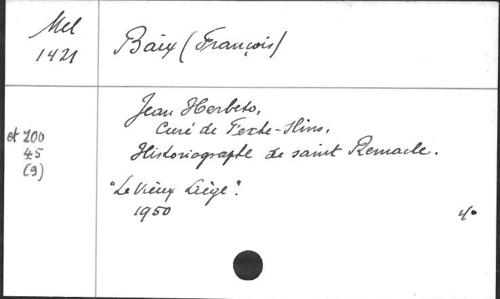 Mel
1421
Baix (François)
et 200
45
(9)
Jean Herbeto,
Curé de Fexhe-Slins,
Historiographe de saint Remacle.
"Le Vieux Liège".
1950
4°